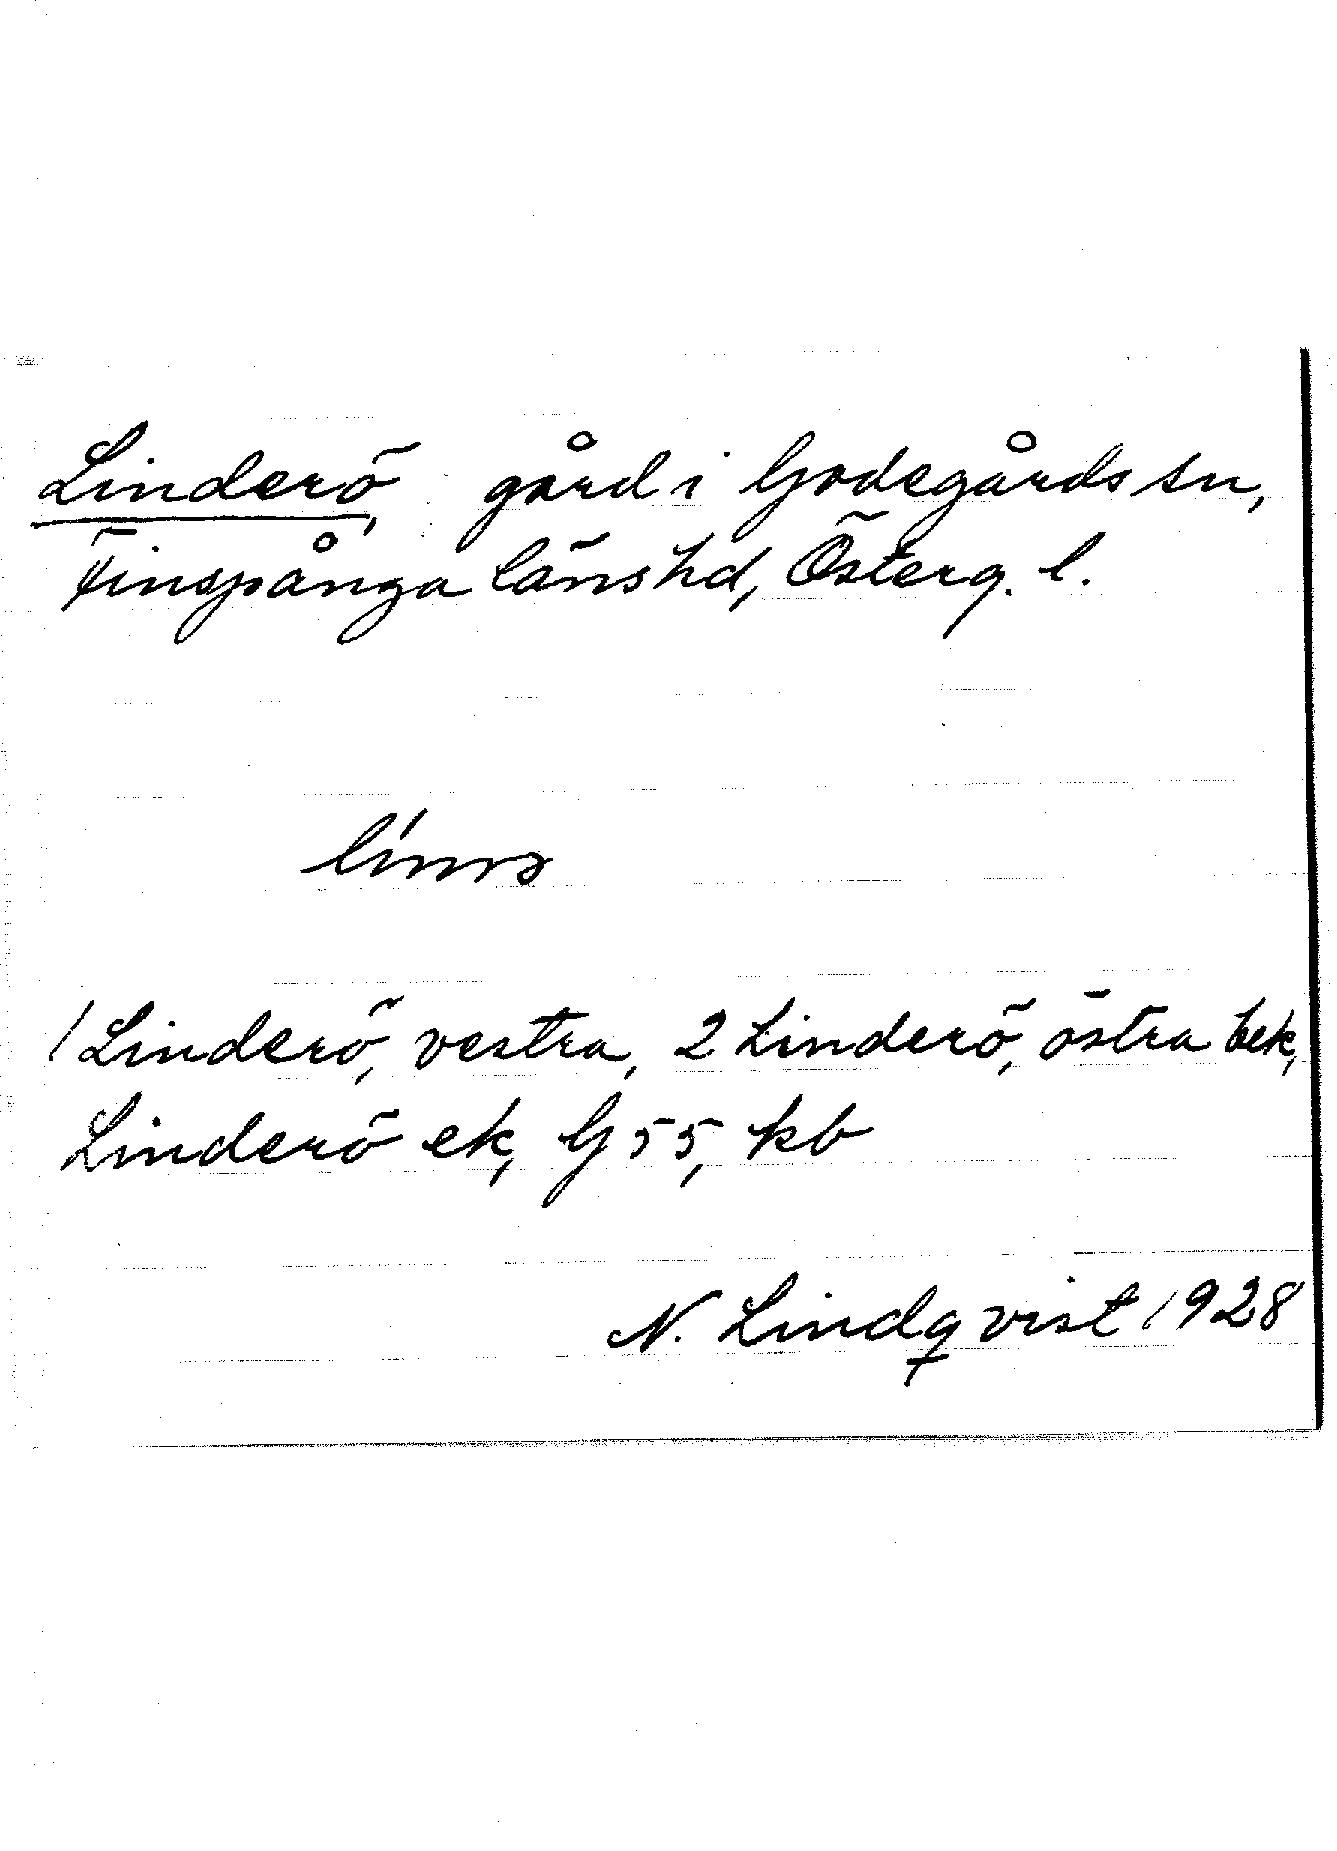 Linderö, gård i Godegårds sn,
Finspånga läns hd, Österg. l.
1 Linderö, vestra, 2 Linderö, östra bek,
Linderö ek, G 55, kb
N. Lindqvist 1928